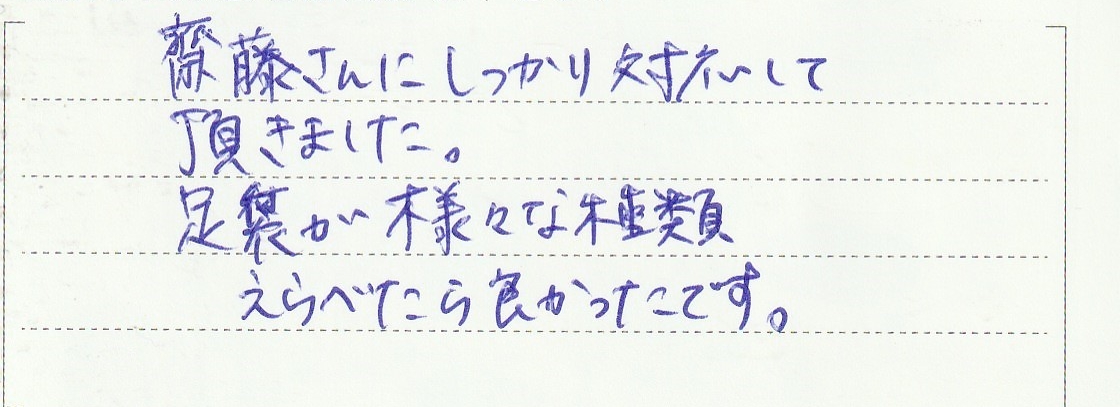 齋藤さんにしっかり対応して
頂きました。
足袋が様々な種類
えらべたら良かったです。